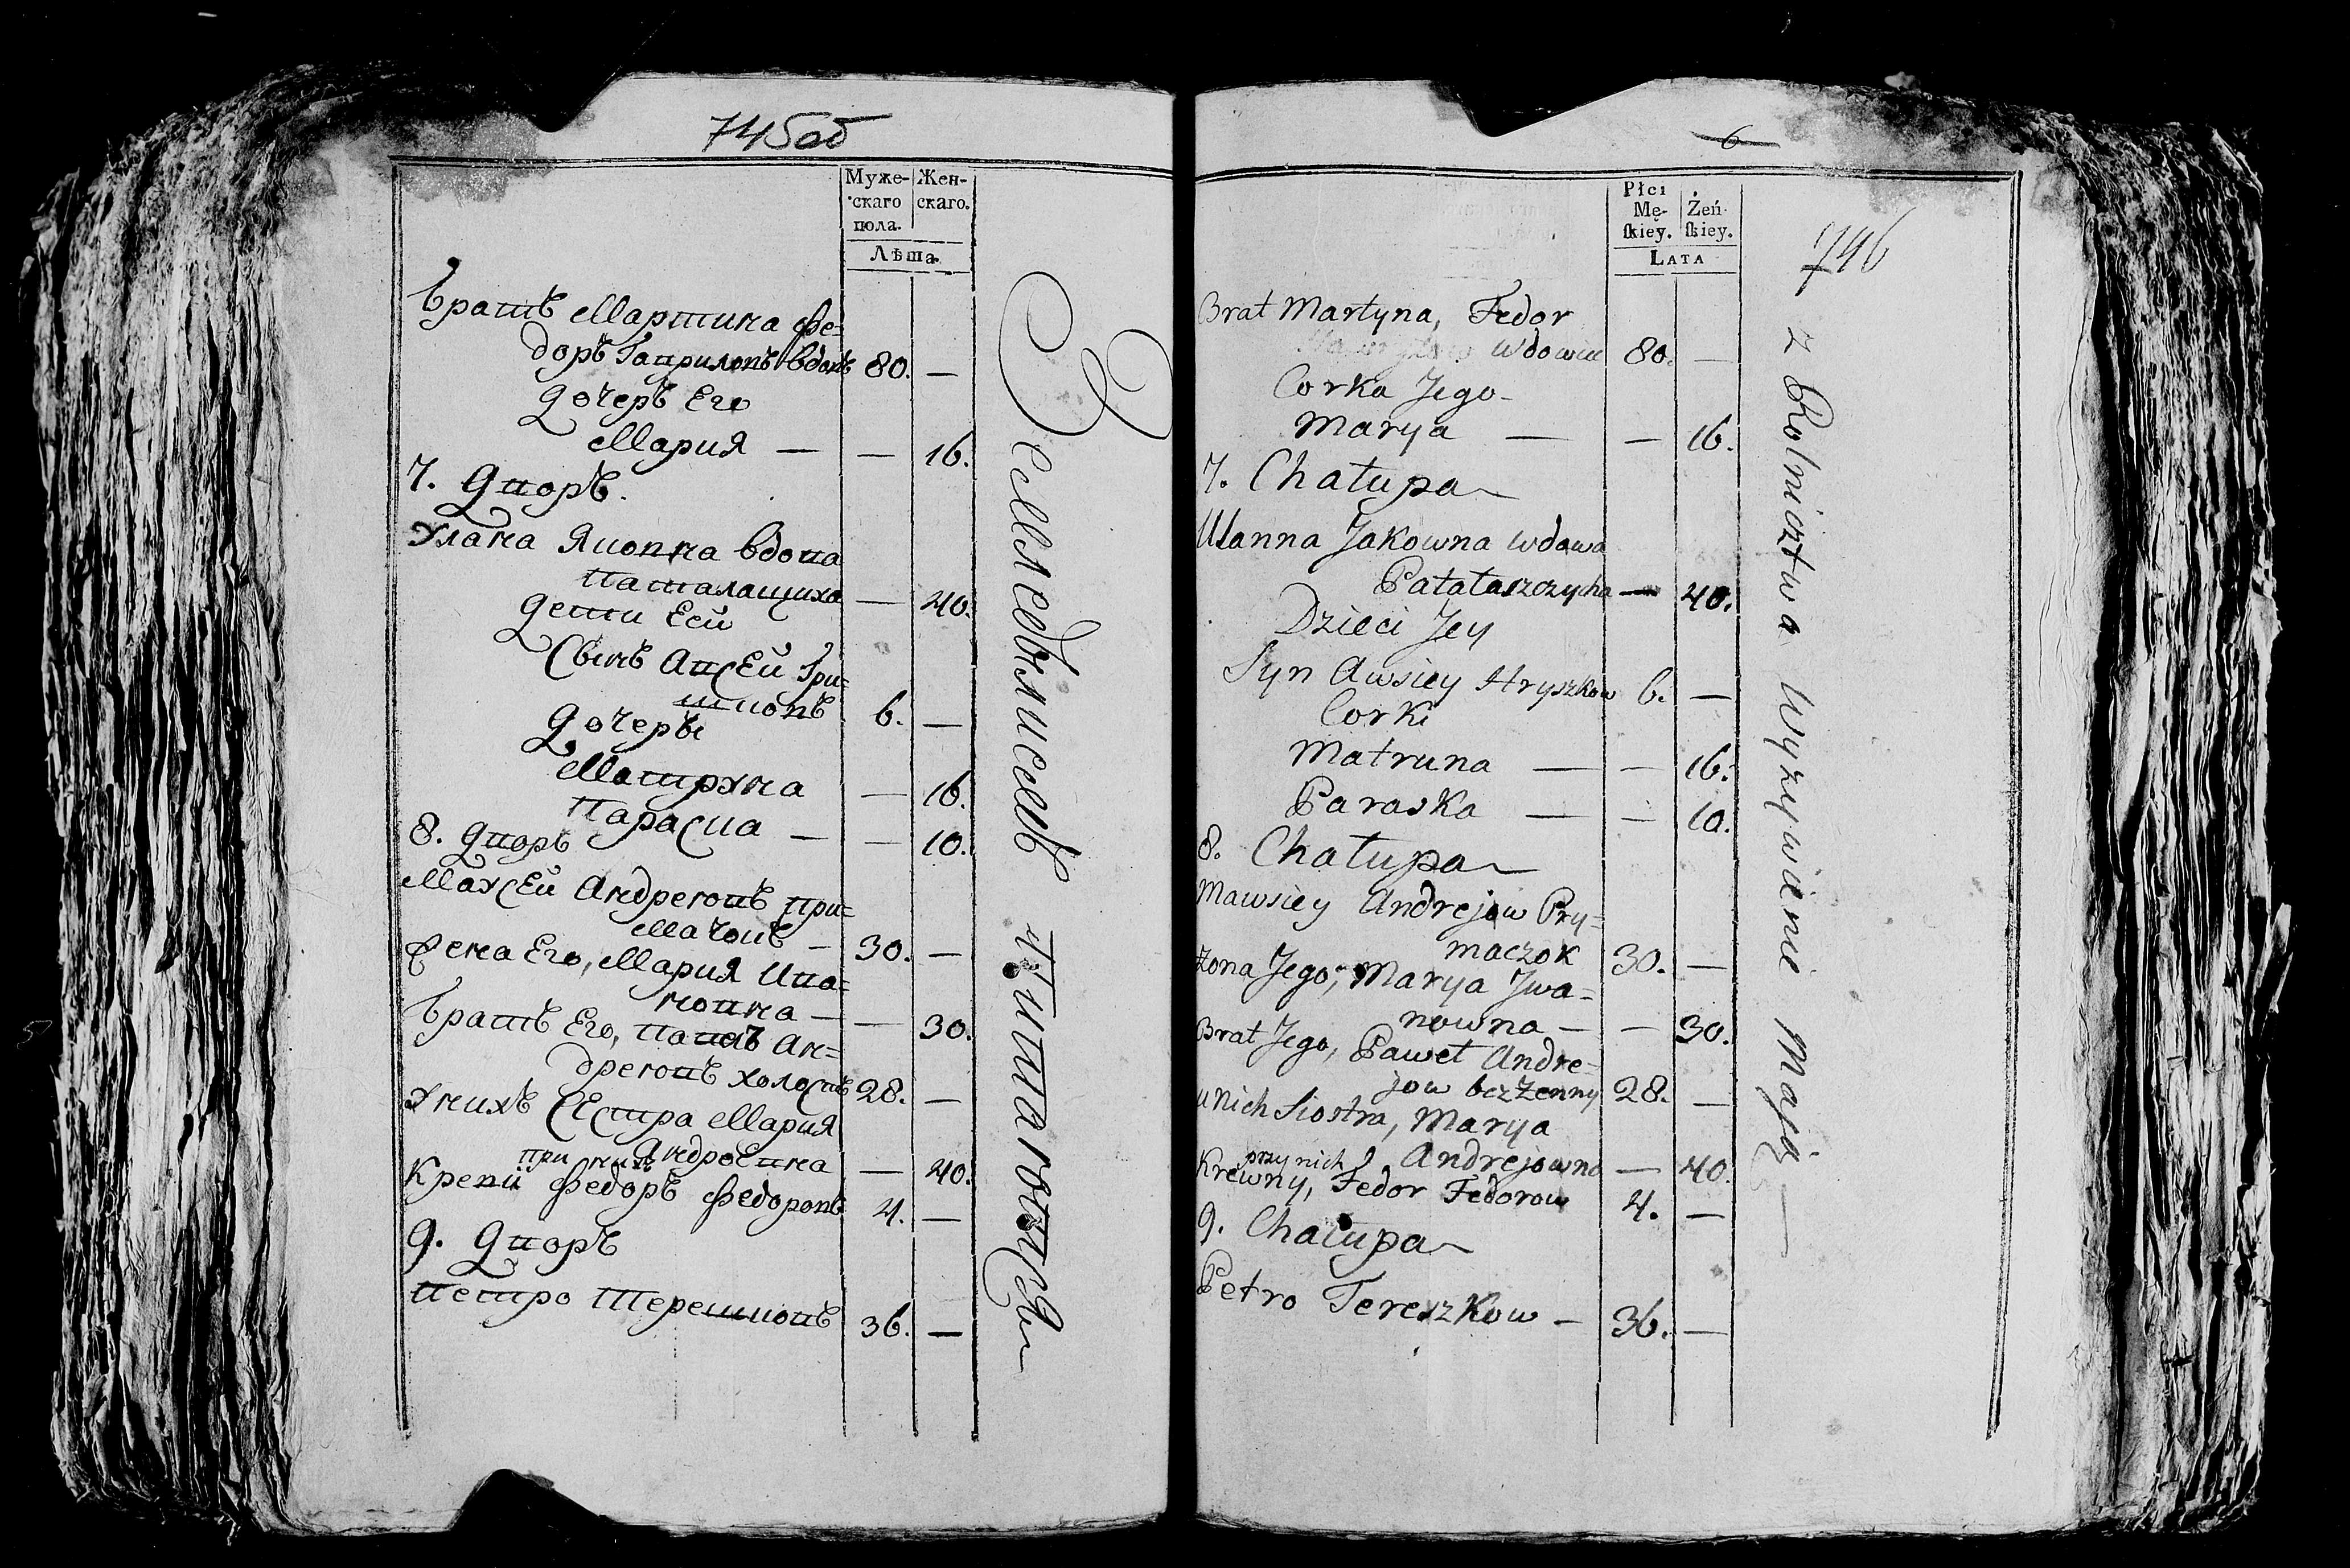 745об
Муже-
скаго
пола.
Жен-
скаго.
Лѣта.
Братъ Мартина Фе=
доръ Гавриловъ вдовъ 80. —
Дочеръ Его
Мария — — 16.
7. Дворъ.
Улана Яковна вдова
Паталащиха — 40.
Дети Еей
Сынъ Авсей Гри=
шковъ 6. —
Дочеръи
Матруна — 16.
Параска — — 10.
8. Дворъ
Маусей Андреювъ При=
мачокъ — 30. —
Жена Его, Мария Ива=
новна — — 30.
Братъ Его, Павелъ Ан=
дреювъ холостъ 28. —
У нихъ Сестра Мария
Андроевна — 40.
при нихъ
Кревни Федоръ Федоровъ 4. —
9. Дворъ
Петро Терешковъ 36. —
Земледѣлиемъ Питаютця
6
746
Płci
Mę-
ſkiey.
Żeń-
ſkiey.
Lata
Brat Martyna, Fedor
Wdowiec 80. —
Corka Jego
Marya — — 16.
7. Chałupa
Ulanna Jakowna wdowa
Patałaszczycha — 40.
Dzieci Jey
Syn Awsiey Hryszkow 6. —
Corki
Matruna — — 16.
Paraska — — 10.
8. Chałupa
Mawsiey Andrejow Pry=
maczok 30. —
żona Jego, Marya Jwa=
nowna — — 30.
Brat Jego, Paweł Andre=
jow bezżenny 28. —
u nich Siostra, Marya
Andrejowna — 40.
przy nich
Krewny, Fedor Fedorow 4. —
9. Chałupa
Petro Tereszkow — 36. —
z Rolnictwa Wyzywienie Maią —